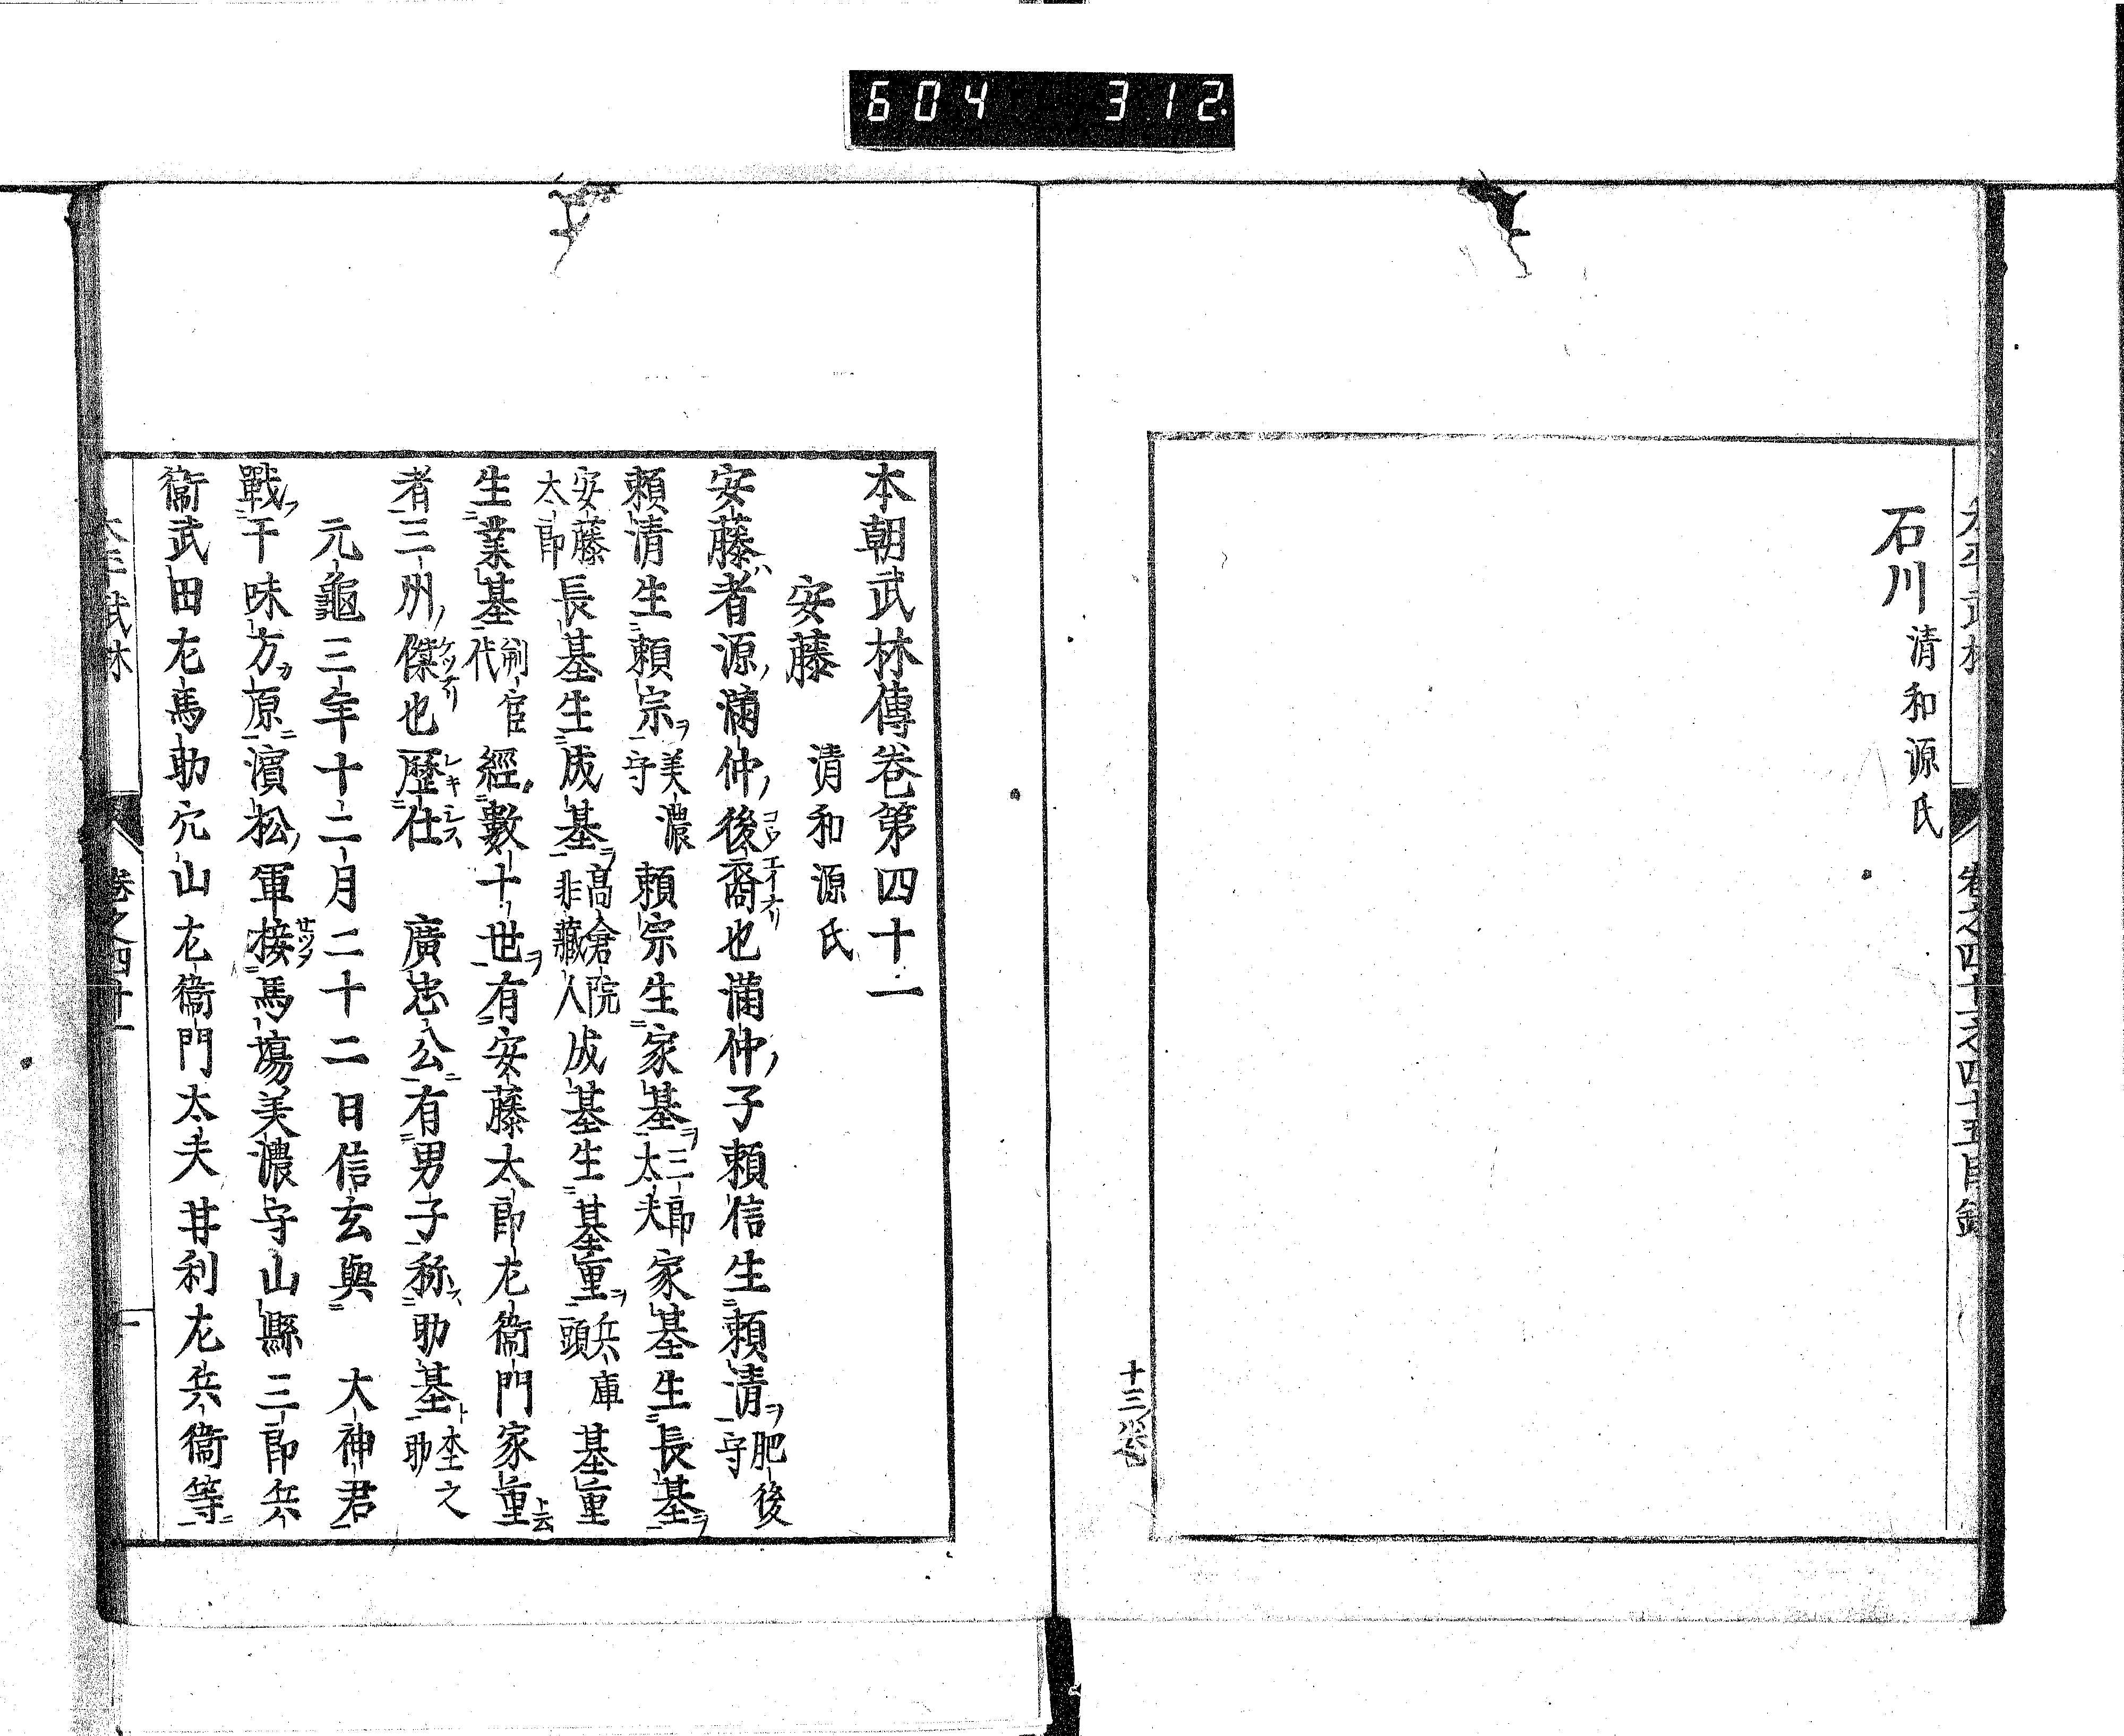 604 312
石川 清和源氏
太平武林 卷之四十一之四十五目録
十三
本朝武林傳卷第四十一
安藤 清和源氏
安藤者源滿仲後裔也滿仲子頼信生頼清肥後守
頼清生頼宗美濃守頼宗生家基三郎太夫家基生長基
安藤太郎長基生成基高倉院非藏人成基生基重兵庫頭基重
生業基判官代經數十世有安藤太郎左衞門家重ト云
者三州傑也歷仕 廣忠公有男子称助基杢之助
元龜三年十二月二十二日信玄與 大神君
戰于味方原濱松軍接馬塲美濃守山縣三郎兵
衞武田左馬助穴山左衞門太夫甘利左兵衞等
太平武林 卷之四十一 一